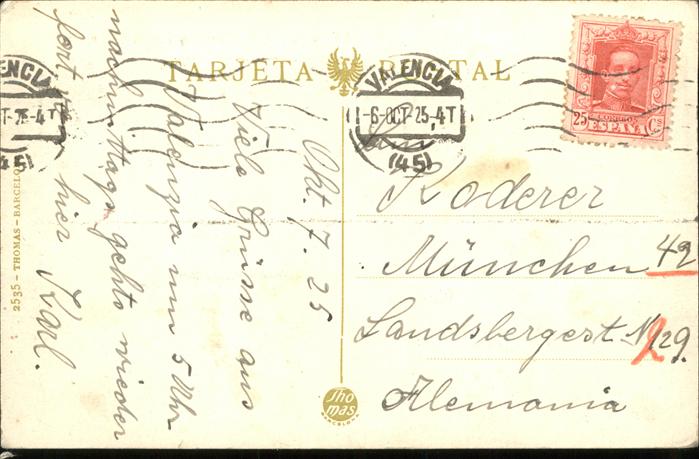 TARJETA POSTAL
VALENCIA
-6.OCT-25.4T
(45)
ENCIA
T-25-4T
(45)
CORREOS
25 ESPAÑA Cs
Okt. 7. 25
Viele Grüsse aus
Valenzia um 5 Uhr
nachmittags gehts wieder
fort von hier
Karl.
Roderer
München 42
Landsbergerst. No 129.
Alemania
Thomas
BARCELONA
2535 - THOMAS - BARCELO